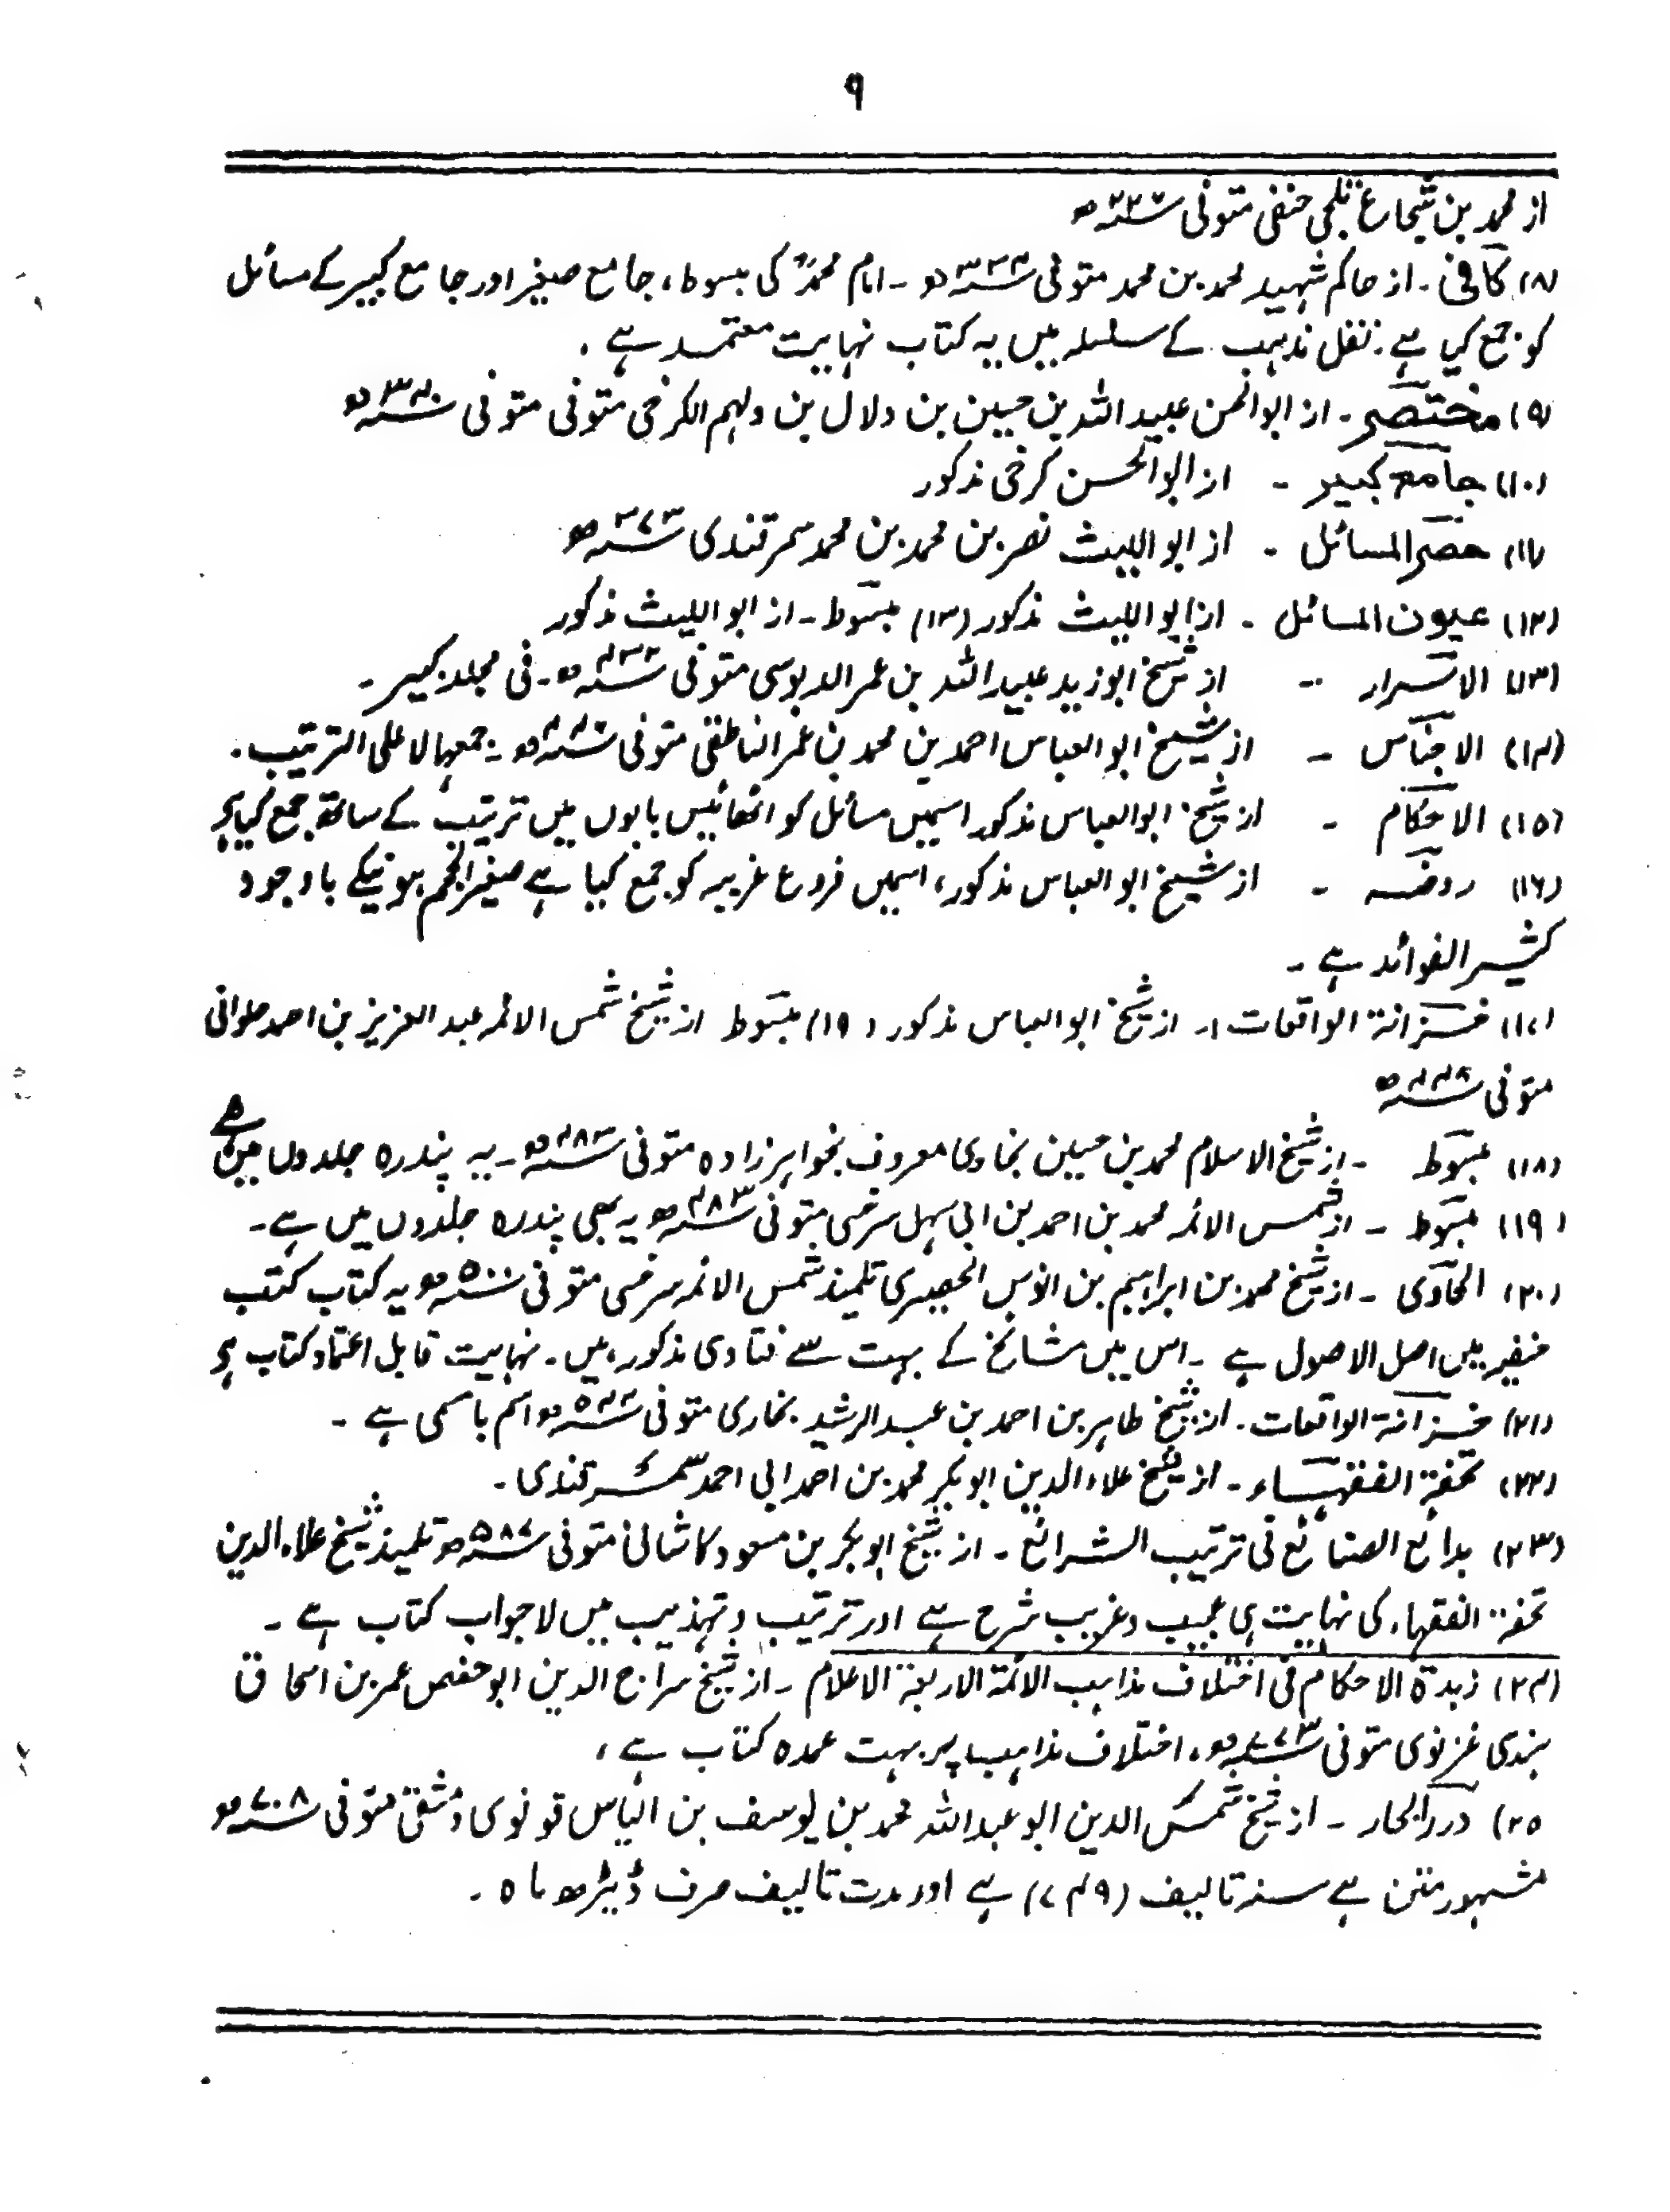 ۹
از محمد بن شجاع ثلجی حنفی متوفی ۲۶۷ھ
(۸) کافی ۔ از حاکم شہید محمد بن محمد متوفی ۳۳۴ھ ۔ امام محمدؒ کی مبسوط، جامع صغیر اور جامع کبیر کے مسائل
کو جمع کیا ہے، نقل مذہب کے سلسلہ میں یہ کتاب نہایت معتمد ہے ۔
(۹) مختصر ۔ از ابوالحسن عبید اللہ بن حسین بن دلال بن دلہم الکرخی متوفی متوفی ۳۴۰ھ
(۱۰) جامع کبیر ۔ از ابوالحسن کرخی مذکور
(۱۱) حصر المسائل ۔ از ابواللیث نصر بن محمد بن محمد سمرقندی ۳۷۳ھ
(۱۲) عیون المسائل ۔ از ابواللیث مذکور (۱۳) مبسوط ۔ از ابواللیث مذکور
(۱۳) الاسرار ۔ از شیخ ابو زید عبید اللہ بن عمر الدبوسی متوفی ۴۳۲ھ ۔ فی مجلد کبیر ۔
(۱۴) الاجناس ۔ از شیخ ابوالعباس احمد بن محمد بن عمر الناطفی متوفی ۴۴۶ھ ۔ جمعہا لا علی الترتیب ۔
(۱۵) الاحکام ۔ از شیخ ابوالعباس مذکور اسمیں مسائل کو اٹھائیس بابوں میں ترتیب کے ساتھ جمع کیا ہے
(۱۶) روضہ ۔ از شیخ ابوالعباس مذکور، اسمیں فروع غریبہ کو جمع کیا ہے صغیر الحجم ہونیکے باوجود
کثیر الفوائد ہے ۔
(۱۷) خزانۃ الواقعات ۔ از شیخ ابوالعباس مذکور (۱۹) مبسوط از شیخ شمس الائمہ عبد العزیز بن احمد حلوانی
متوفی ۴۴۸ھ
(۱۸) مبسوط ۔ از شیخ الاسلام محمد بن حسین بخاری معروف بخواہر زادہ متوفی ۴۸۳ھ ۔ یہ پندرہ جلدوں میں ہے
(۱۹) مبسوط ۔ از شمس الائمہ محمد بن احمد بن ابی سہل سرخسی متوفی ۴۸۳ھ یہ بھی پندرہ جلدوں میں ہے ۔
(۲۰) الحاوی ۔ از شیخ محمد بن ابراہیم بن انوس الحصیری تلمیذ شمس الائمہ سرخسی متوفی ۵۰۰ھ یہ کتاب کتب
حنفیہ میں اصل الاصول ہے ۔ اس میں مشائخ کے بہت سے فتاوی مذکور ہیں ۔ نہایت قابل اعتماد کتاب ہے
(۲۱) خزانۃ الواقعات ۔ از شیخ طاہر بن احمد بن عبد الرشید بخاری متوفی ۵۴۲ھ اسم بامسمی ہے ۔
(۲۲) تحفۃ الفقہاء ۔ از شیخ علاء الدین ابوبکر محمد بن احمد ابی احمد سمرقندی ۔
(۲۳) بدائع الصنائع فی ترتیب الشرائع ۔ از شیخ ابوبکر بن مسعود کاشانی متوفی ۵۸۷ھ تلمیذ شیخ علاء الدین
تحفۃ الفقہاء کی نہایت ہی عجیب و غریب شرح ہے اور ترتیب و تہذیب میں لاجواب کتاب ہے ۔
(۲۴) زبدۃ الاحکام فی اختلاف مذاہب الائمۃ الاربعۃ الاعلام ۔ از شیخ سراج الدین ابو حفص عمر بن اسحاق
ہندی غزنوی متوفی ۷۷۳ھ، اختلاف مذاہب پر بہت عمدہ کتاب ہے،
۲۵) درر البحار ۔ از شیخ شمس الدین ابو عبد اللہ محمد بن یوسف بن الیاس قونوی دمشقی متوفی ۷۰۸ھ
مشہور متن ہے سنہ تالیف (۷۴۹) ہے اور مدت تالیف صرف ڈیڑھ ماہ ۔